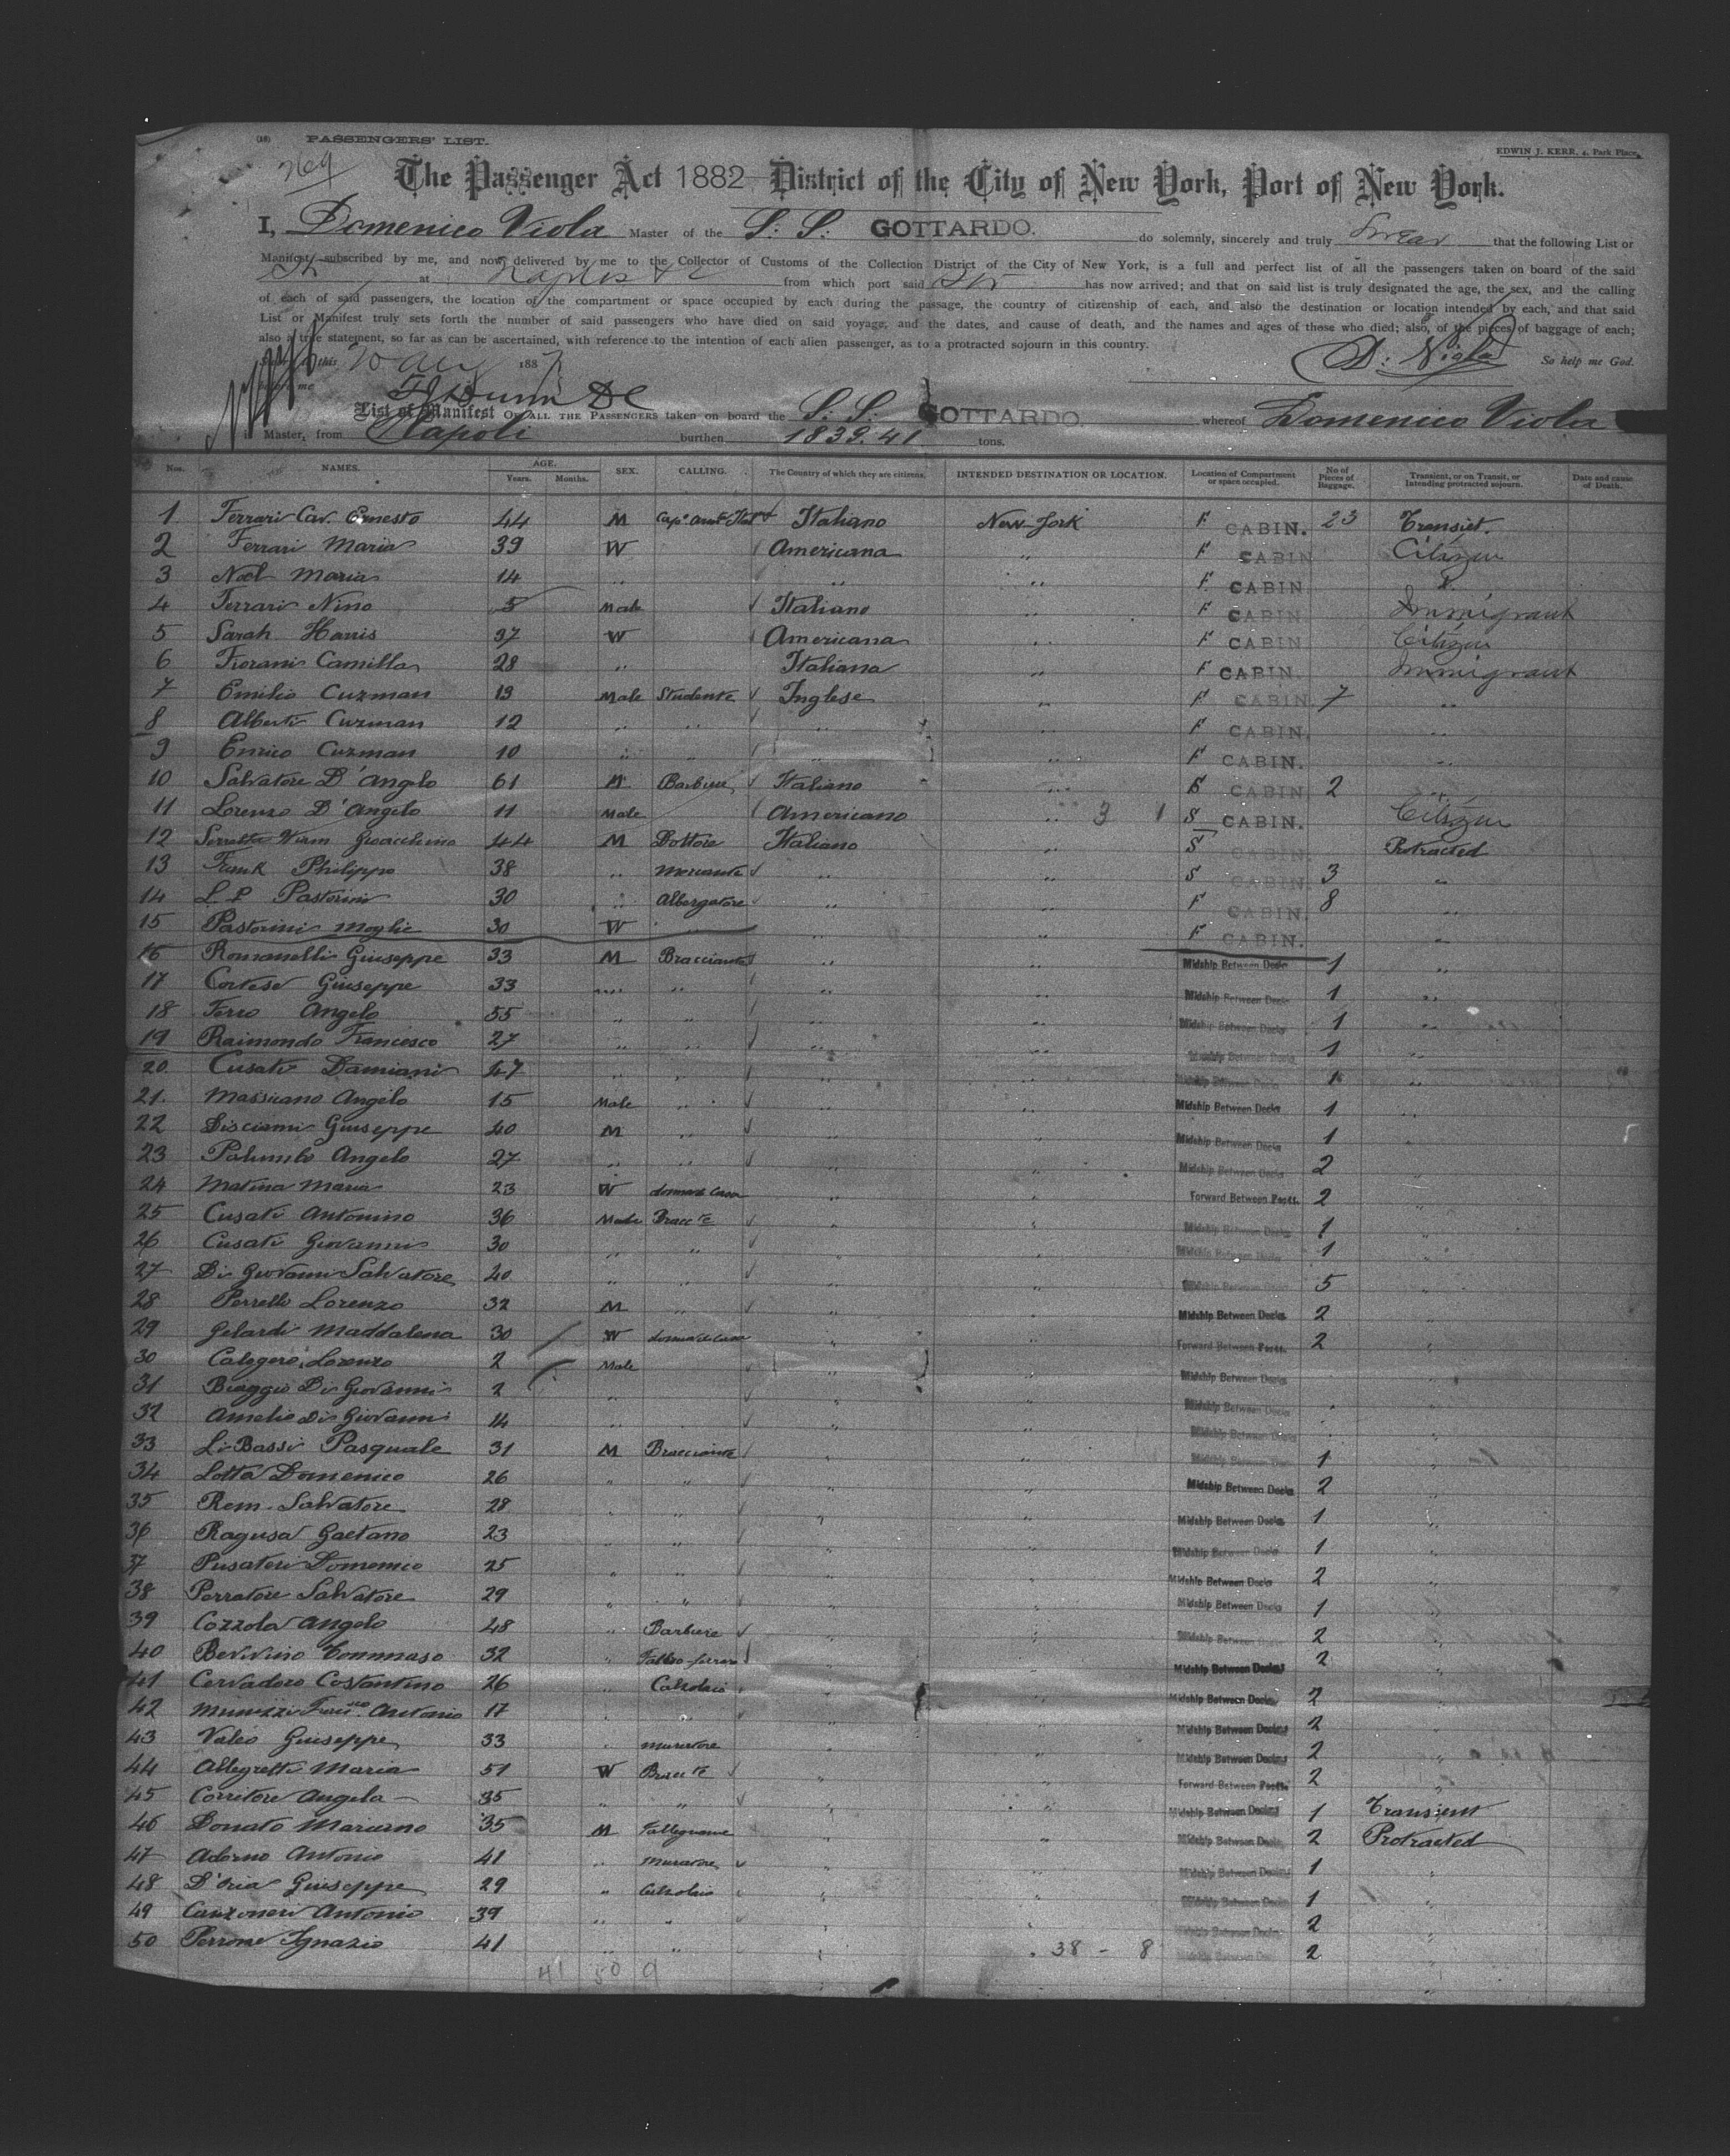 (18) PASSENGERS' LIST.
EDWIN J. KERR, 4, Park Place,
269
The Passenger Act 1882 District of the City of New York, Port of New York.
I, Domenico Viola Master of the S: S: GOTTARDO. do solemnly, sincerely and truly Swear that the following List or
Manifest, subscribed by me, and now delivered by me to the Collector of Customs of the Collection District of the City of New York, is a full and perfect list of all the passengers taken on board of the said
at Naples from which port said Str has now arrived; and that on said list is truly designated the age, the sex, and the calling
of each of said passengers, the location of the compartment or space occupied by each during the passage, the country of citizenship of each, and also the destination or location intended by each, and that said
List or Manifest truly sets forth the number of said passengers who have died on said voyage, and the dates, and cause of death, and the names and ages of those who died; also, of the pieces of baggage of each;
also a true statement, so far as can be ascertained, with reference to the intention of each alien passenger, as to a protracted sojourn in this country.
this 20 188 D: Viola So help me God.
me
List of Manifest OF ALL THE PASSENGERS taken on board the S: S: GOTTARDO. whereof Domenico Viola
is Master, from Napoli burthen 1839.41 tons.
Nos. NAMES. AGE. Years. Months. SEX. CALLING. The Country of which they are citizens. INTENDED DESTINATION OR LOCATION. Location of Compartment or space occupied. No of Pieces of Baggage. Transient, or on Transit, or Intending protracted sojourn. Date and cause of Death.
1 Ferrari Cav. Ernesto 44 M Italiano New-York F CABIN. 23 Transiet.
2 Ferrari Maria 39 W Americana " F CABIN Citizen
3 Noel Maria 14 " " " F CABIN
4 Ferrari Nino 5 Male Italiano F CABIN Immigrant
5 Sarah Harris 37 W Americana " F CABIN Citizen
6 Fiorani Camilla 28 " Italiana " F CABIN. Immigrant
7 Emilio Cuzman 13 Male Studente Inglese " F CABIN 7 "
8 Alberto Cuzman 12 " " " F CABIN. "
9 Enrico Cuzman 10 " " " F CABIN. "
10 Salvatore D'Angelo 61 M Barbiere Italiano " S CABIN 2 "
11 Lorenzo D'Angelo 11 Male Americano " 3 1 S CABIN. Citizen
12 Gioacchino 44 M Dottore Italiano " S CABIN. Protracted
13 Frank Philippo 38 " Mercante " " S CABIN 3 "
14 L. P. Pastorini 30 " Albergatore " " F CABIN. 8 "
15 Pastorini Moglie 30 W " " " F CABIN. "
16 Romanelli Giuseppe 33 M Bracciante " " Midship Between Decks 1 "
17 Cortese Giuseppe 33 " " " " Midship Between Decks 1 "
18 Ferro Angelo 55 " " " " Midship Between Decks 1 "
19 Raimondo Francesco 27 " " " " Midship Between Decks 1 "
20. Cusati Damiani 47 " " " " Midship Between Decks 1 "
21. Massicano Angelo 15 Male " " " Midship Between Decks 1 "
22 Giuseppe 40 M " " " Midship Between Decks 1
23 Palumbo Angelo 27 " " " " Midship Between Decks 2
24 Matina Maria 23 W donna di casa " " Forward Between 2 "
25 Cusati Antonino 36 Male Bracc.te " " Midship Between Decks 1
26 Cusati Giovanni 30 " " " " Midship Between Decks 1 "
27 Di Giovanni Salvatore 40 " " " " Midship Between Decks 5 "
28 Perrello Lorenzo 32 M " " " Midship Between Decks 2 "
29 Gelardi Maddalena 30 W donna di casa " " Forward Between 2 "
30 Calogero Lorenzo 2 Male Midship Between Decks
31 Biaggio Di Giovanni 2 " " " Midship Between Decks "
32 Amelio Di Giovanni 14 " " " Midship Between Decks
33 Li Bassi Pasquale 31 M Bracciante " " Midship Between Decks 1 "
34 Lotta Domenico 26 " " " " Midship Between Decks 2 "
35 Rem. Salvatore 28 " " " " Midship Between Decks 1 "
36 Ragusa Gaetano 23 " " " " Midship Between Decks 1 "
37 Pusateri Domenico 25 " " " " Midship Between Decks 2 "
38 Porratore Salvatore 29 " " " " Midship Between Decks 1 "
39 Cozzola Angelo 48 " Barbiere " " Midship Between Decks 2
40 Bevivino Tommaso 32 " " Midship Between Decks 2
41 Cervadoro Costantino 26 " Calzolaio " Midship Between Decks 2
42 Antonio 17 " " Midship Between Decks 2
43 Valeo Giuseppe 33 " Muratore Midship Between Decks 2 "
44 Allegretti Maria 51 W Bracc.te " Forward Between 2 "
45 Corritore Angela 35 " " " Midship Between Decks 1 Transient
46 Donato Mariano 35 M Fallegname " " Midship Between Decks 2 Protracted
47 Adorno Antonio 41 " Muratore " Midship Between Decks 1 "
48 D'Oria Giuseppe 29 " Calzolaio " " Midship Between Decks 1 "
49 Canzoneri Antonio 39 " " " Midship Between Decks 2 "
50 Perrone Ignazio 41 " " " 38 - 8 Midship Between Decks 2 "
41 50 9